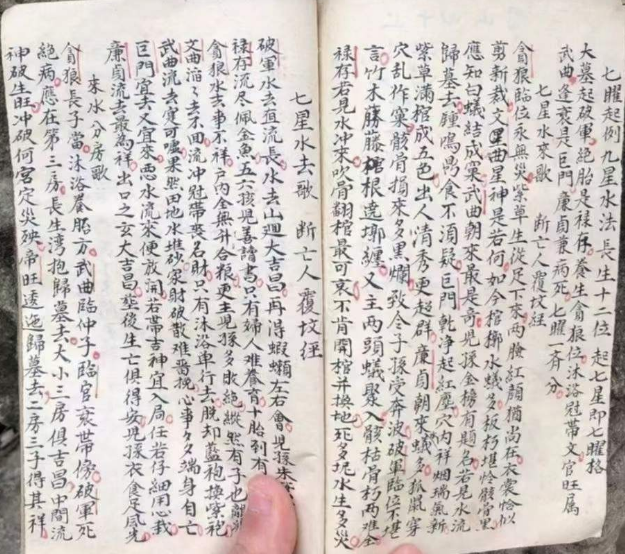 七曜起例九星水法長生十二位 起七星即七曜格
大墓起破軍絕胎是祿存養生貪狼位沐浴冠帶文官旺属
武曲逢衰是巨門廉貞兼病死七曜一斉分
七星水來歌 斷亡人覆坟經
貪狼臨位永無災紫草生從足下來两臉紅顏猶尚在衣裳恰似
剪新裁文星曲星神是若何如今棺槨水蟻多板朽堪怜骸骨里
應知白蟻結成窠武曲朝來最是奇見孫金榜有顯名若見水流
歸墓去鐘鳴鼎食不須疑巨門乾净起紅塵穴内祥烟瑞氣新
紫草满棺成五色出人清秀更超群廉貞朝來蟻多狐鼠穿
穴乱作窠骸骨揭來多黑爛致令子孫常奔波破軍臨位不堪
言竹木藤藤棺根遶塚纏又主两頭蟻聚入骸枯骨朽两难全
祿存若見水冲來吹骨翻棺最可哀不肯開棺并換地死多坭水生多災
七星水去歌 斷亡人覆坟經
破軍水去狙流長水去山廻大吉昌再得蝦鬚左右會見孫朱
祿存流尽佩金魚五六孩児善讀書只有婦人难養育十胎到有
貪狼水去事不祥户内無丹合狼更主見孫多敗絕縱然有子也
文曲滔滔去不回流冲冠帶娶名財只有沐浴单行去脱却藍袍換紫袍
武曲流去寔可嗟果然田地水推砂家財破散难醫挽心事多端身自亡
巨門宜去又宜來两水流來便放開若帶吉神宜入局任君仔細用心裁
廉貞流去最為祥出口之玄大吉昌葬後生亡俱得安児孫衣食足風光
來水分房歌
貪狼長子當沐浴養服方武曲臨仲子臨官衰帶傍破軍死
絕病應在第三房長生湾抱歸墓去大小三房俱吉昌中間流
神破生旺冲破何宮定災殃帝旺逶迤歸墓去二房三子得其祥